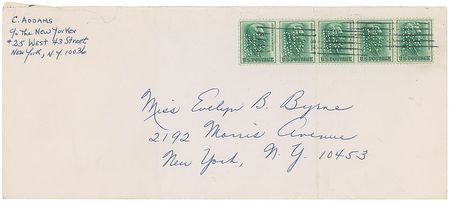 C. ADDAMS
c/o The New Yorker
#25 West 43 Street
New York, N.Y. 10036
U.S. POSTAGE U.S. POSTAGE U.S. POSTAGE U.S. POSTAGE U.S. POSTAGE
Miss Evelyn B. Byrne
2192 Morris Avenue
New York, N.Y. 10453